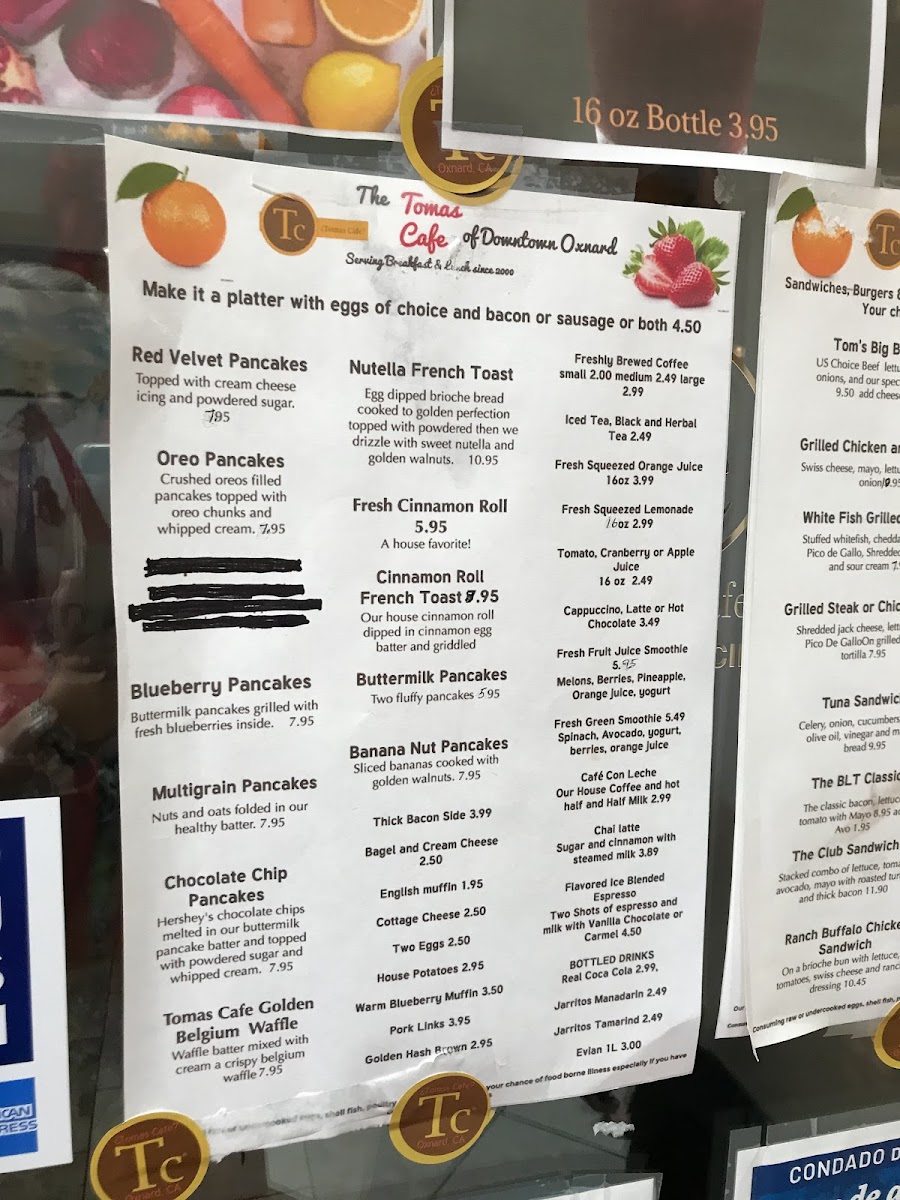 16 oz Bottle 3.95
Tc
Oxnard, CA
Tc
(Tomas Cafe)
The Tomas
Cafe of Downtown Oxnard
Serving Breakfast & Lunch since 2000
Make it a platter with eggs of choice and bacon or sausage or both 4.50
Red Velvet Pancakes
Topped with cream cheese
icing and powdered sugar.
7.95
Oreo Pancakes
Crushed oreos filled
pancakes topped with
oreo chunks and
whipped cream. 7.95
Blueberry Pancakes
Buttermilk pancakes grilled with
fresh blueberries inside. 7.95
Multigrain Pancakes
Nuts and oats folded in our
healthy batter. 7.95
Chocolate Chip
Pancakes
Hershey's chocolate chips
melted in our buttermilk
pancake batter and topped
with powdered sugar and
whipped cream. 7.95
Tomas Cafe Golden
Belgium Waffle
Waffle batter mixed with
cream a crispy belgium
waffle 7.95
Nutella French Toast
Egg dipped brioche bread
cooked to golden perfection
topped with powdered then we
drizzle with sweet nutella and
golden walnuts. 10.95
Fresh Cinnamon Roll
5.95
A house favorite!
Cinnamon Roll
French Toast 8.95
Our house cinnamon roll
dipped in cinnamon egg
batter and griddled
Buttermilk Pancakes
Two fluffy pancakes 5.95
Banana Nut Pancakes
Sliced bananas cooked with
golden walnuts. 7.95
Thick Bacon Side 3.99
Bagel and Cream Cheese
2.50
English muffin 1.95
Cottage Cheese 2.50
Two Eggs 2.50
House Potatoes 2.95
Warm Blueberry Muffin 3.50
Pork Links 3.95
Golden Hash Brown 2.95
Freshly Brewed Coffee
small 2.00 medium 2.49 large
2.99
Iced Tea, Black and Herbal
Tea 2.49
Fresh Squeezed Orange Juice
16oz 3.99
Fresh Squeezed Lemonade
16oz 2.99
Tomato, Cranberry or Apple
Juice
16 oz 2.49
Cappuccino, Latte or Hot
Chocolate 3.49
Fresh Fruit Juice Smoothie
5.95
Melons, Berries, Pineapple,
Orange juice, yogurt
Fresh Green Smoothie 5.49
Spinach, Avocado, yogurt,
berries, orange juice
Café Con Leche
Our House Coffee and hot
half and Half Milk 2.99
Chai latte
Sugar and cinnamon with
steamed milk 3.89
Flavored Ice Blended
Espresso
Two Shots of espresso and
milk with Vanilla Chocolate or
Carmel 4.50
BOTTLED DRINKS
Real Coca Cola 2.99,
Jarritos Manadarin 2.49
Jarritos Tamarind 2.49
Evian 1L 3.00
shell fish, poultry
your chance of food borne illness especially if you have
Tc
Sandwiches, Burgers &
Your ch
Tom's Big B
US Choice Beef lettu
onions, and our spec
9.50 add chees
Grilled Chicken an
Swiss cheese, mayo, lettu
White Fish Grilled
Stuffed whitefish, chedda
Pico de Gallo, Shredded
and sour cream 7.
Grilled Steak or Chic
Shredded jack cheese, lett
Pico De GalloOn grilled
tortilla 7.95
Tuna Sandwic
Celery, onion, cucumbers
olive oil, vinegar and m
bread 9.95
The BLT Classic
The classic bacon, lettuc
tomato with Mayo 8.95 ad
Avo 1.95
The Club Sandwich
Stacked combo of lettuce, toma
avocado, mayo with roasted tur
and thick bacon 11.90
Ranch Buffalo Chicke
Sandwich
On a brioche bun with lettuce,
tomatoes, swiss cheese and ranc
dressing 10.45
Consuming raw or undercooked eggs, shell fish, p
(Tomas Cafe)
Tc
Oxnard, CA
(Tomas Cafe)
Tc
Oxnard, CA
ICAN
RESS
CONDADO D
de